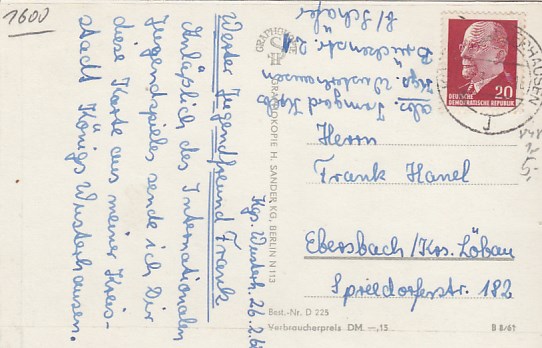 1600
Kgs. Wusterh. 26.2.6
Werter Jugendfreund Frank
Anläßlich des Internationalen
Jugendspieles sende ich Dir
diese Karte aus meiner Kreis-
stadt Königs Wusterhausen.
abs. Irmgard
Kgs. Wusterhausen
Brückenstr. 21
b/ Schäfer
GRAPHOKOPIE H. SANDER KG, BERLIN N 113
DEUTSCHE
DEMOKRATISCHE REPUBLIK
20
Herrn
Frank Hanel
Ebersbach/Krs. Löbau
Spreedorferstr. 182
Best.-Nr. D 225
Verbraucherpreis DM. —,15
B 8/61